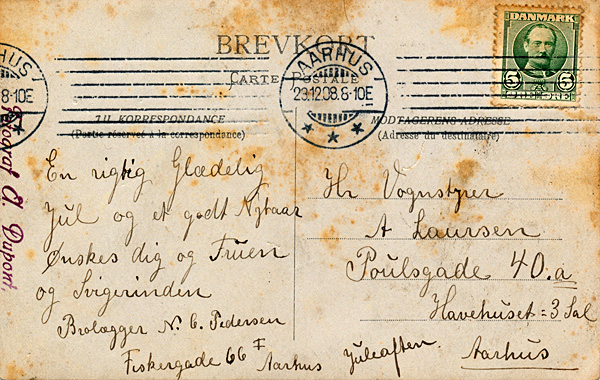 BREVKORT
CARTE POSTALE
TIL KORRESPONDANCE
(Partie réservée à la correspondance)
MODTAGERENS ADRESSE
(Adresse du destinataire)
DANMARK
5 5
AARHUS 1
29.12.08.8-10E
AARHUS 1
8.8-10E
Fotograf A. Dupont.
En rigtig Glædelig
Jul og et godt Nytaar
Ønskes dig og Fruen
og Svigerinden
Brolægger N. C. Pedersen
Fiskergade 66 I Aarhus Juleaften.
Hr Vognstyrer
A Laursen
Poulsgade 40.a
Havehuset = 3 Sal
Aarhus